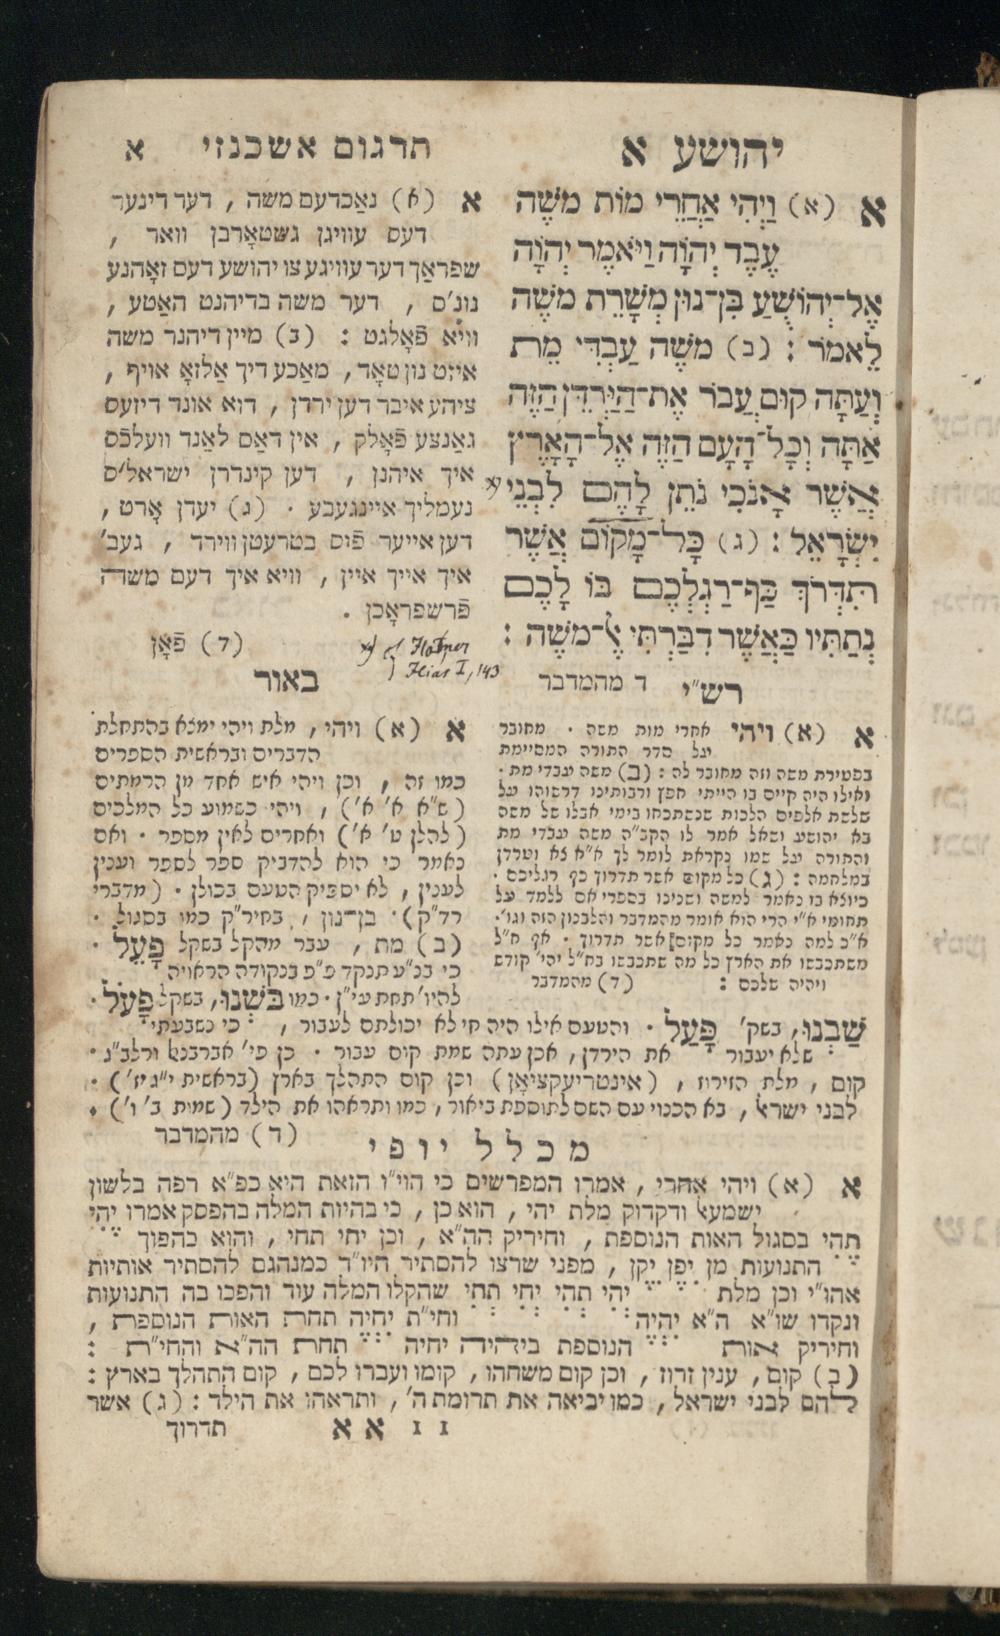 יהושע א
א (א) וַיְהִי אַחֲרֵי מוֹת משֶׁה
עֶבֶד יְהוָֹה וַיֹּאמֶר יְהוָֹה
אֶל־יְהוֹשֻׁעַ בִּן־נוּן מְשָׁרֵת משֶׁה
לֵאמֹר : (ב) משֶׁה עַבְדִּי מֵת
וְעַתָּה קוּם עֲבֹר אֶת־הַיַּרְדֵּן הַזֶּה
אַתָּה וְכָל־הָעָם הַזֶּה אֶל־הָאָרֶץ
אֲשֶׁר אָנֹכִי נֹתֵן לָהֶם לִבְנֵי
יִשְׂרָאֵל : (ג) כָּל־מָקוֹם אֲשֶׁר
תִּדְרֹךְ כַּף־רַגְלְכֶם בּוֹ לָכֶם
נְתַתִּיו כַּאֲשֶׁר דִבַּרְתִּי אֶל־משֶׁה :
ד מהמדבר
תרגום אשכנזי א
א (א) נאַכדעם משה , דער דינער
דעס עוויגן גשטאָרבן וואר ,
שפראַך דער עוויגע צו יהושע דעם זאָהנע
נונ'ס , דער משה בדיהנט האַטע ,
וויא פֿאָלגט : (ב) מיין דיהנר משה
איזט נון טאָד , מאַכע דיך אַלזאָ אויף ,
ציהע איבר דען ירדן , דוא אונד דיזעס
גאַנצע פֿאָלק , אין דאַס לאַנד וועלכֿס
איך איהנן , דען קינדרן ישראל'ס
נעמליך איינגעבע . (ג) יעדן אָרט ,
דען אייער פֿוס בטרעטן ווירד , געב'
איך אייך איין , וויא איך דעם משה
פֿרשפראָכן .
(ד) פֿאָן
x) cf
Ilias I, 143
רש"י
א (א) ויהי אחרי מות משה . מחובר
על סדר התורה המסיימת
בפטירת משה וזה מחובר לה : (ב) משה עבדי מת .
ואילו היה קיים בו הייתי חפץ ורבותינו דרשוהו על
שלשת אלפים הלכות שנשתכחו בימי אבלו של משה
בא יהושע ושאל אמר לו הקב"ה משה עבדי מת
והתורה על שמו נקראת לומר לך א"א צא וטרדן
במלחמה : (ג) כל מקום אשר תדרוך כף רגליכם .
כיוצא בו נאמר למשה ושנינו בספרי אם ללמד על
תחומי א"י הרי הוא אומר מהמדבר והלבנון הזה וגו'.
א"כ למה נאמר כל מקום אשר תדרוך . אף ח"ל
משתכבשו את הארץ כל מה שתכבשו בח"ל יהי' קודש
ויהיה שלכם : (ד) מהמדבר
באור
א (א) ויהי , מלת ויהי ימצא בהתחלת
הדברים ובראשית הספרים
כמו זה , וכן ויהי איש אחד מן הרמתים
(ש"א א' א') , ויהי כשמוע כל המלכים
(להלן ט' א') ואחרים לאין מספר . ואם
נאמר כי הוא להדביק ספר לספר וענין
לענין , לא יספיק הטעם בכולן . (מדברי
רד"ק) . בן־נון , בחיר"ק כמו בסגול .
(ב) מת , עבר מהקל בשקל פָּעֵל .
כי בנ"ע תנקד פ"פ בנקודה הראויה
להיו' תחת עי"ן . כמו בּשְׁנוּ , בשקל פָּעֹל .
שַׁבְנוּ , בשק' פָּעַל . והטעם אילו היה חי לא יכולתם לעבור , כי נשבעתי
שלא יעבור את הירדן , אכן עתה שמת קום עבור . כן פי' אברבנאל ורלב"ג .
קום , מלת הזירוז , (אינטריעקציאָן) וכן קום התהלך בארץ (בראשית י"ג יז') .
לבני ישראל , בא הכנוי עם השם לתוספת ביאור , כמו ותראהו את הילד (שמות ב' ו') .
(ד) מהמדבר
מכלל יופי
א (א) ויהי אחרי , אמרו המפרשים כי הוי"ו הזאת היא כפ"א רפה בלשון
ישמעאל ודקדוק מלת יהי , הוא כן , כי בהיות המלה בהפסק אמרו יהי
תהי בסגול האות הנוספת , וחיריק הה"א , וכן יחי תחי , והוא בהפוך
התנועות מן יפן יקן , מפני שרצו להסתיר היו"ד כמנהגם להסתיר אותיות
אהו"י וכן מלת יהי תהי יחי תחי שהקלו המלה עוד והפכו בה התנועות
ונקדו שו"א ה"א יהיה וחי"ת יחיה תחת האות הנוספת ,
וחיריק אות הנוספת ביהיה יחיה תחת הה"א והחי"ת :
(ב) קום , ענין זרוז , וכן קום משחהו , קומו ועברו לכם , קום התהלך בארץ :
להם לבני ישראל , כמו יביאה את תרומת ה' , ותראהו את הילד : (ג) אשר
תדרוך
II א א